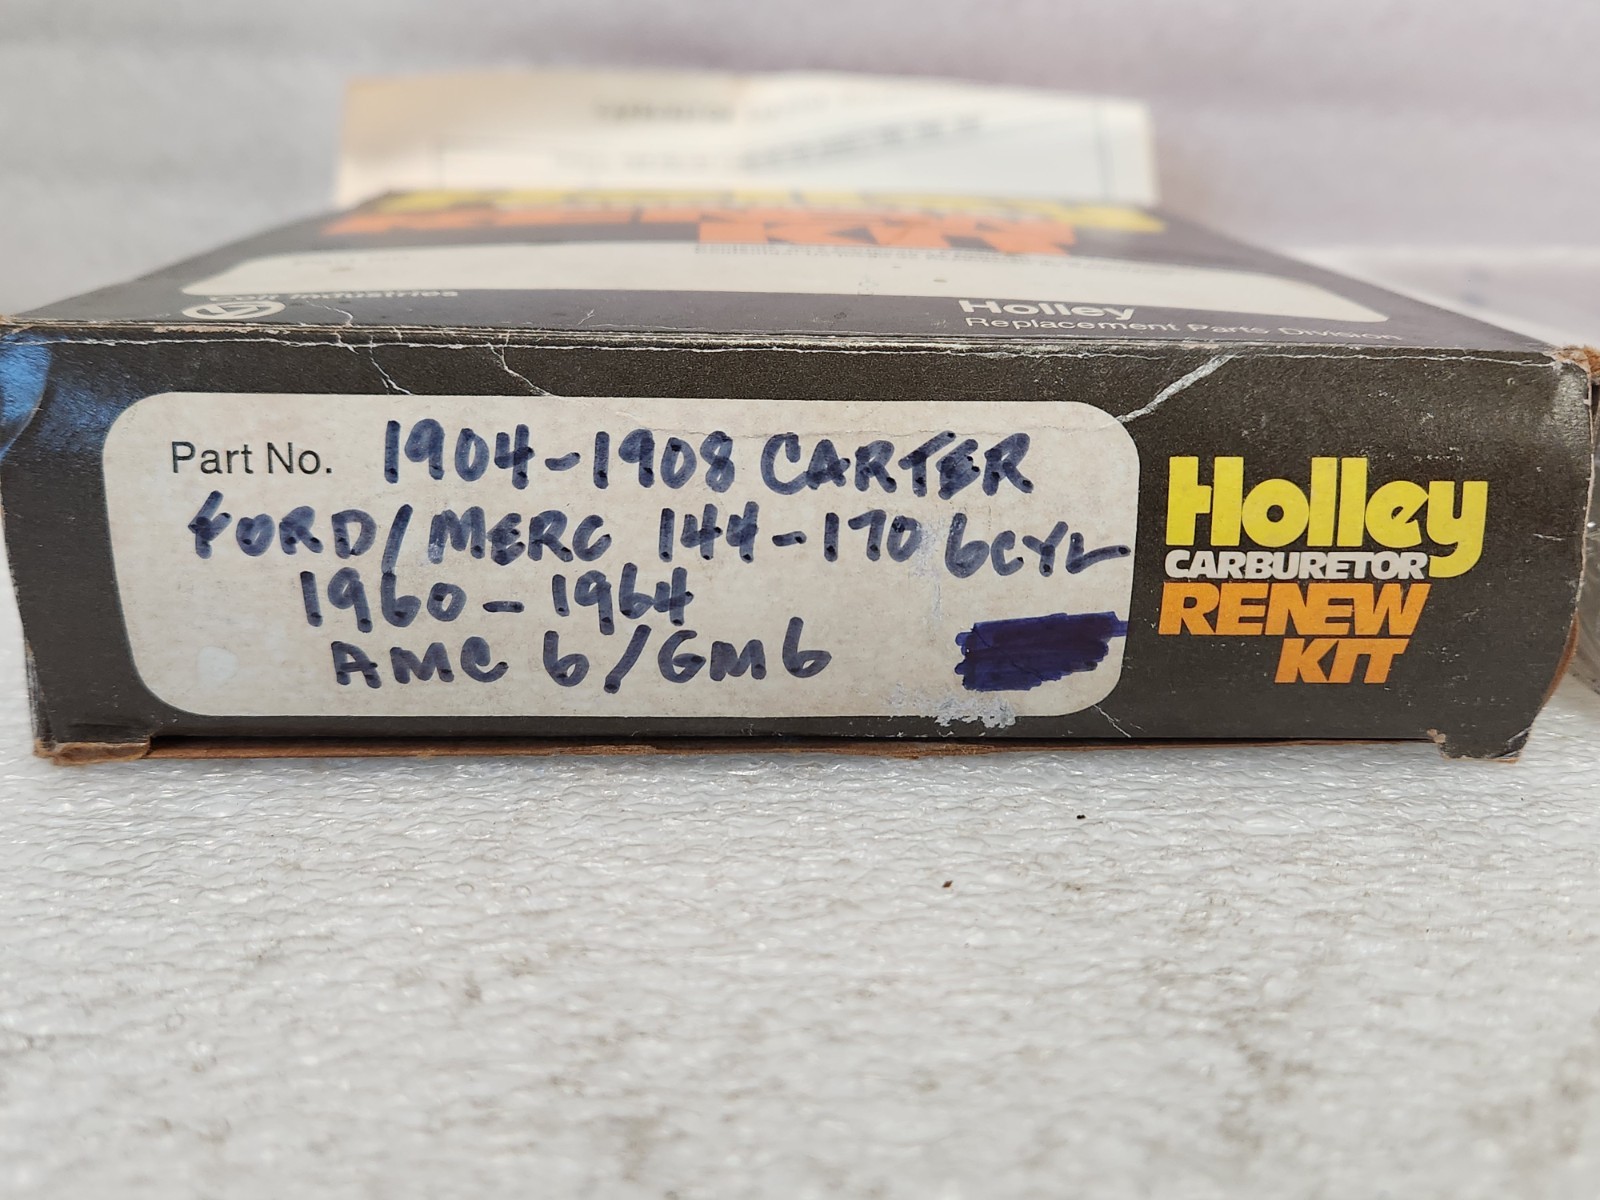 RENEW
KIT
Colt Industries
Holley
Replacement Parts Division
Part No. 1904-1908 CARTER
FORD/MERC 144-170 6CYL
1960-1964
AMC 6/GM6
Holley
CARBURETOR
RENEW
KIT